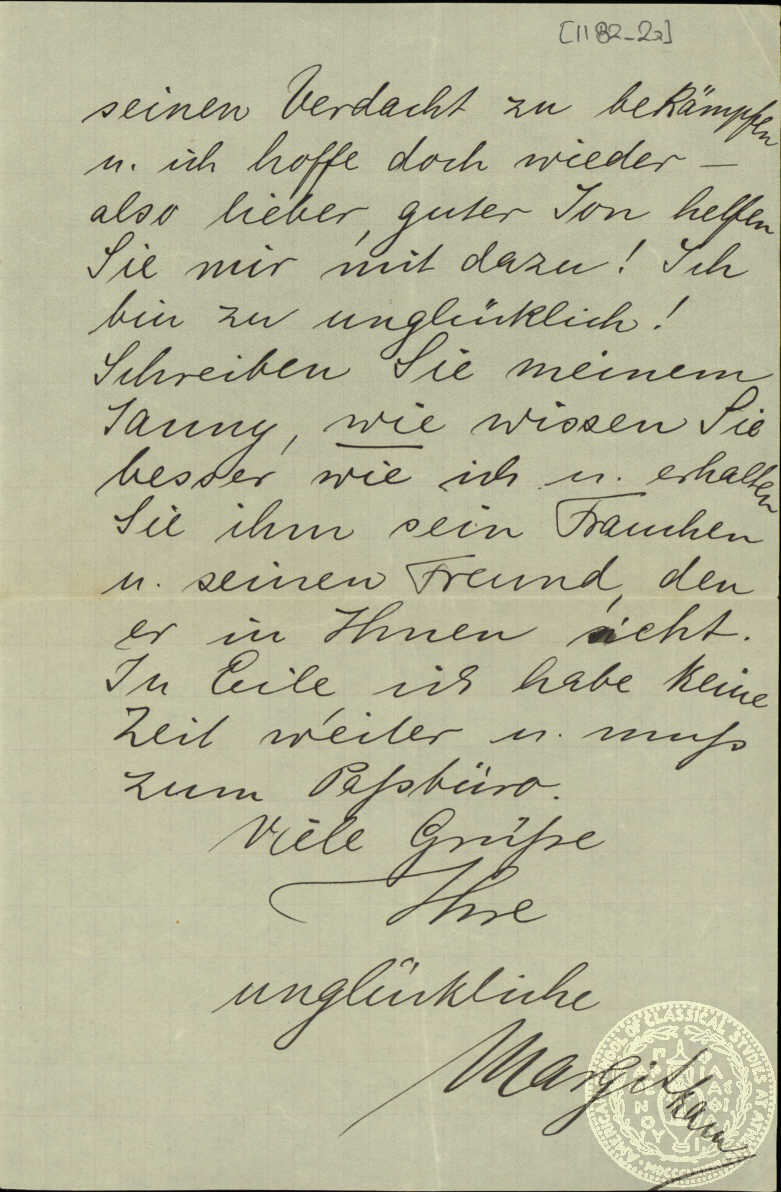 [1182-2a]
seinen Verdacht zu bekämpfen
u. ich hoffe doch wieder –
also lieber, guter Ion helfen
Sie mir mit dazu! Ich
bin zu unglücklich!
Schreiben Sie meinem
Janny, wie wissen Sie
besser wie ich u. erhalten
Sie ihm sein Frauchen
u. seinen Freund, den
er in Ihnen sieht.
In Eile, ich habe keine
Zeit weiter u. muß
zum Paßbüro.
Viele Grüße
Ihre
unglückliche
Margit